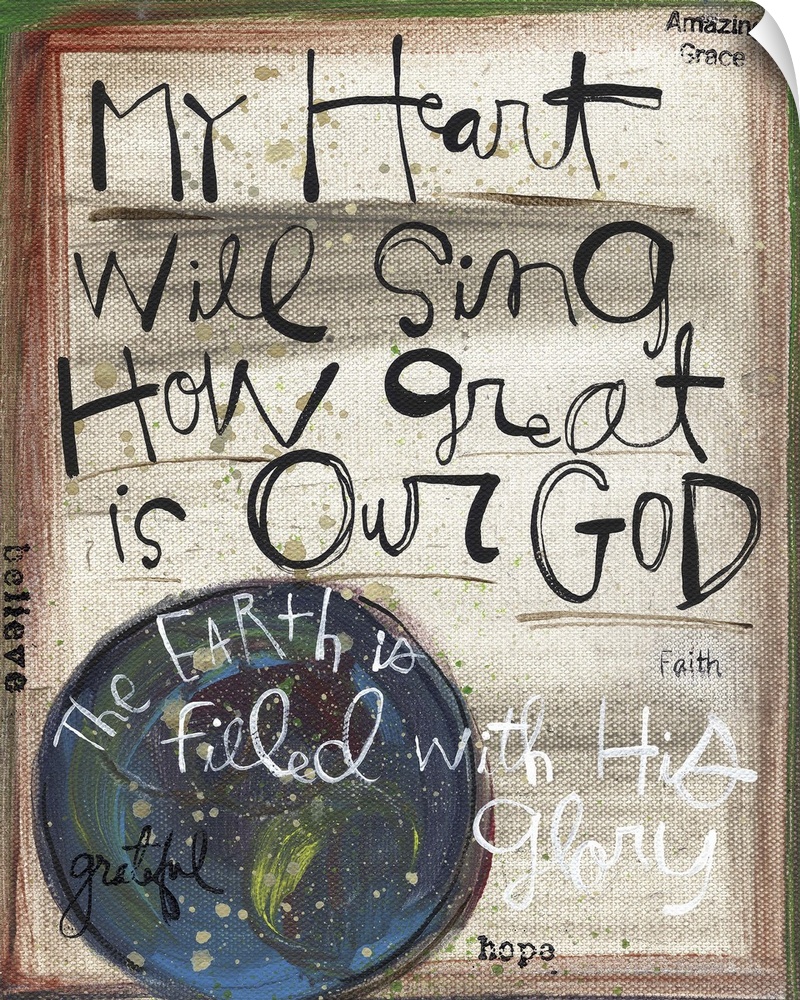 Amazin
Grace
My Heart
Will Sing
How great
is Our GOD
believe
The EARth is
Filled with His
Faith
glory
grateful
hope